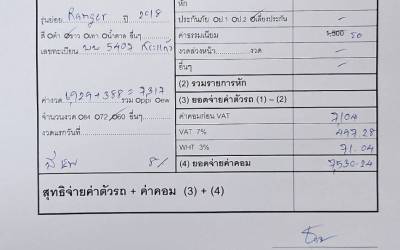 หัก
รุ่นย่อย Ranger ปี 2018
ประกันภัย ป1 ป2 เลี่ยงประกัน -
สี ดำ ขาว เทา น้ำตาล อื่นๆ
ค่าธรรมเนียม 50
เลขทะเบียน 5403
งวดล่วงหน้า งวด -
อื่นๆ -
(2) รวมรายการหัก
ค่างวด 1,929+388 = 7,317 รวม ppi ew
(3) ยอดจ่ายค่าตัวรถ (1) – (2)
จำนวนงวด 84 72 60 อื่นๆ
ค่าคอมก่อน VAT 7,104
งวดแรกวันที่
VAT 7% 497.28
WHT 3% 71.04
8%
(4) ยอดจ่ายค่าคอม 7,530.24
สุทธิจ่ายค่าตัวรถ + ค่าคอม (3) + (4)